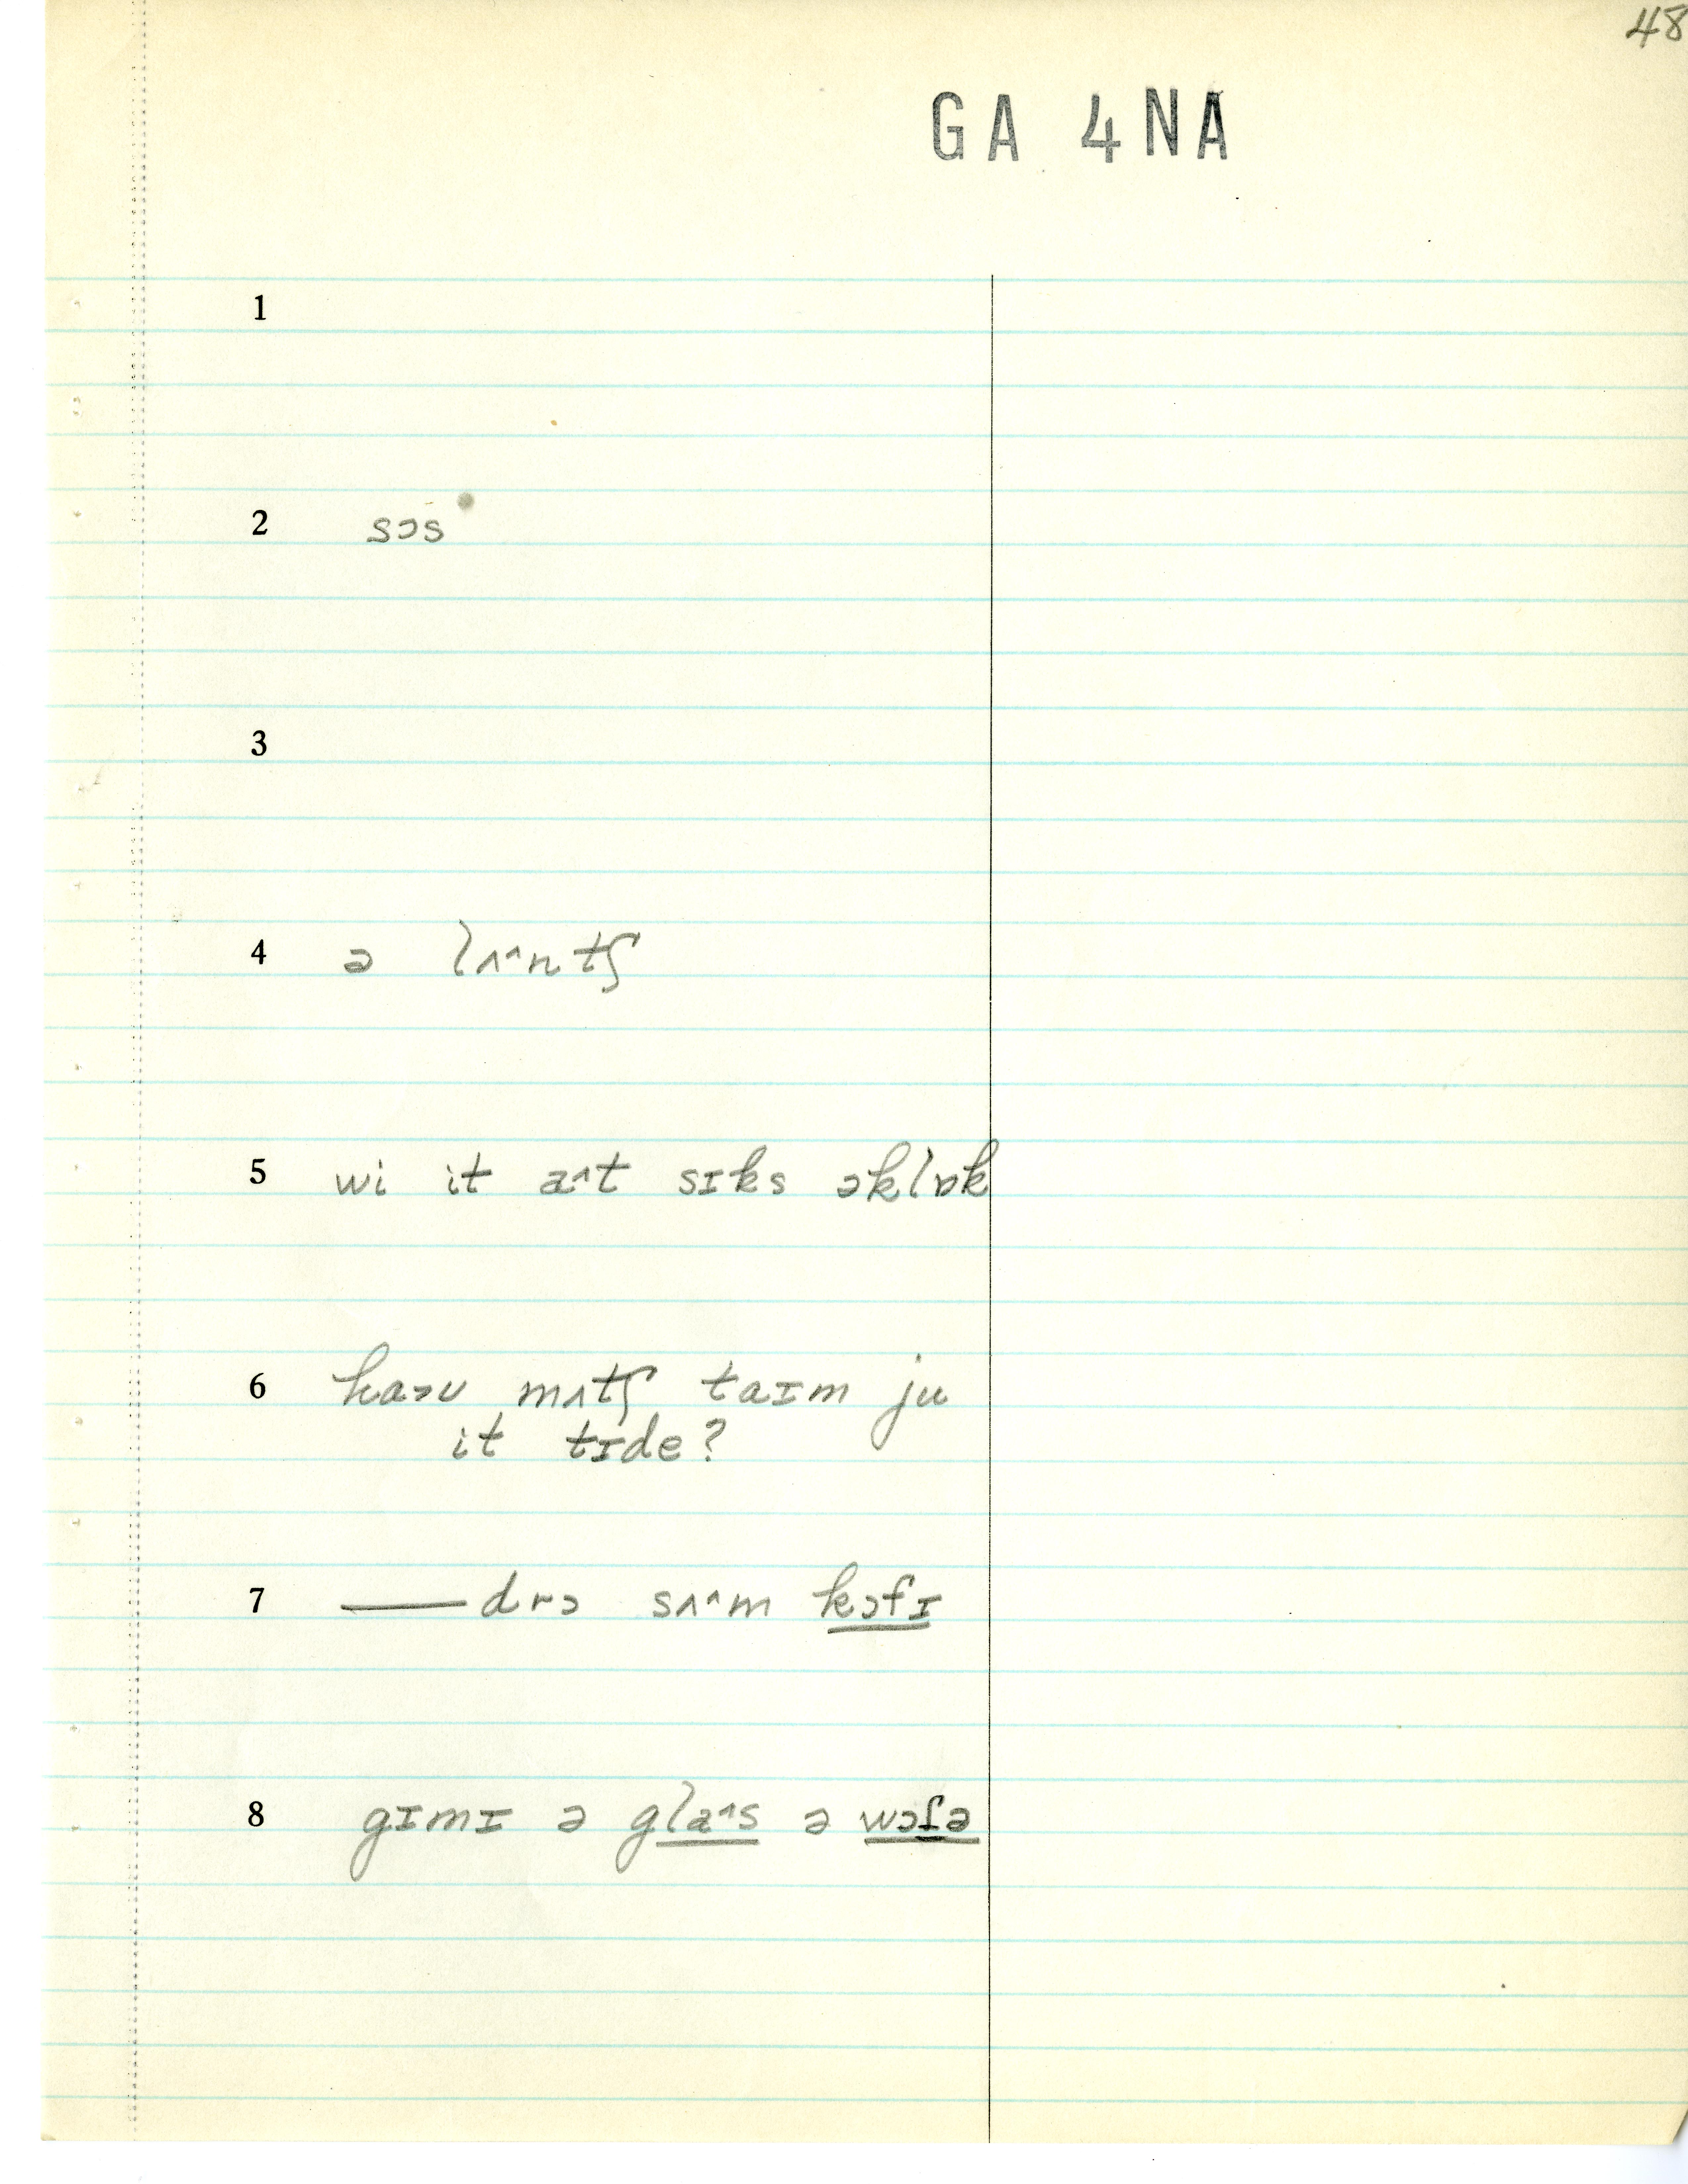 48
GA 4NA
1
2 sɔs
3
4 ə lʌ^ntʃ
5 wi it a^t sɪks əklɒk
6 haɔu mʌtʃ taɪm ju
it tɪde?
7 —— drɔ sʌ^m kɔfɪ
8 gɪmɪ ə gla^s ə wɔfə